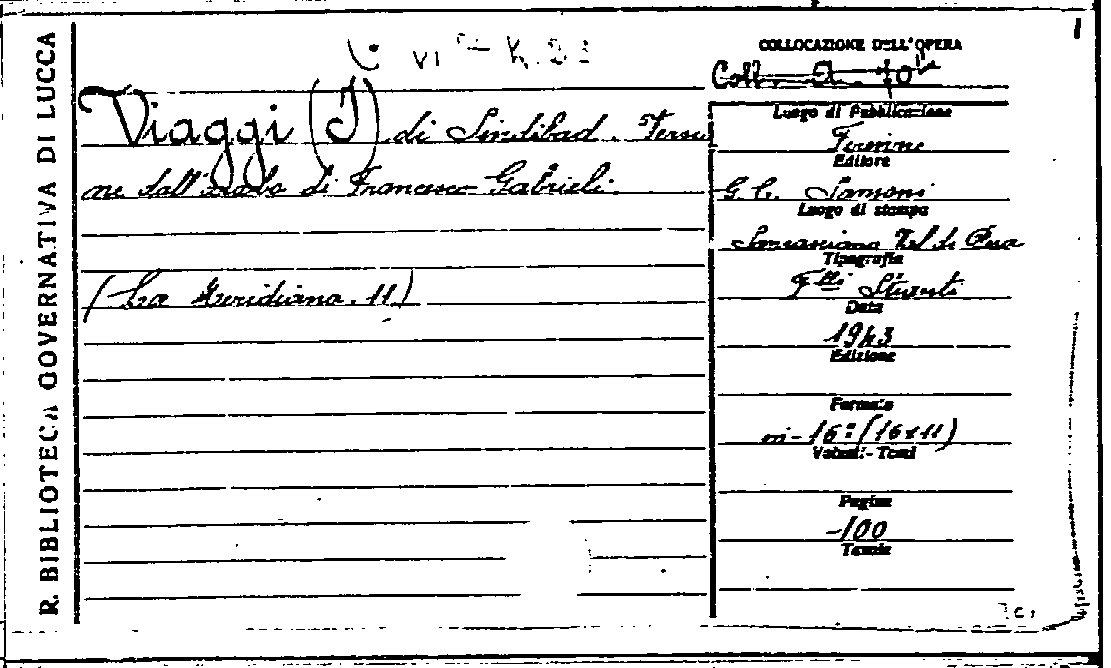 R. BIBLIOTECA GOVERNATIVA DI LUCCA
COLLOCAZIONE DELL'OPERA
Coll.
Viaggi (I) di Sindibad. Versio
ne dall'arabo di Francesco Gabrieli.
(La Meridiana. 11)
Luogo di Pubblicazione
Firenze
Editore
G. C. Sansoni
Luogo di stampa
Tipografia
F.lli Stianti
Data
1943
Edizione
Formato
in-16° (16x11)
Volumi - Tomi
Pagine
-100
Tavole